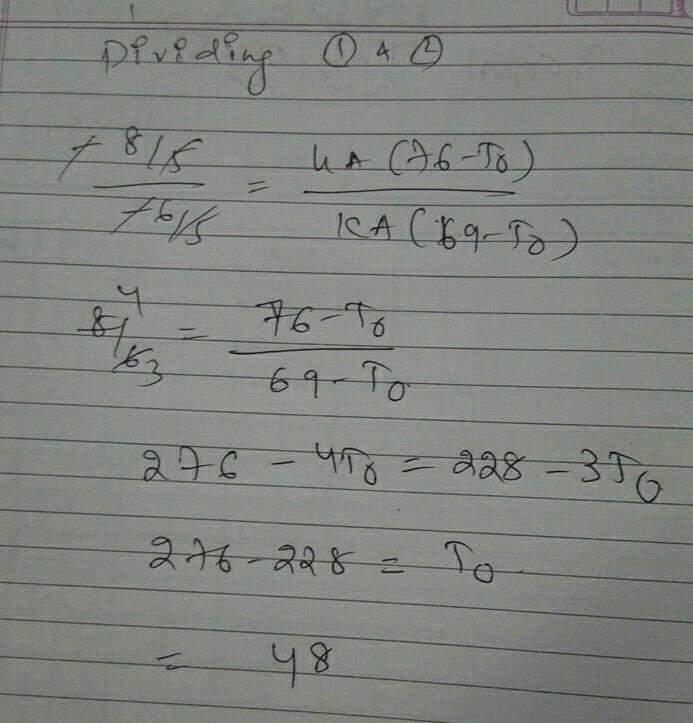 Dividing ① & ②
-8/5 / -6/5 = KA(76-T₀) / KA(69-T₀)
8/6 4/3 = 76-T₀ / 69-T₀
276 - 4T₀ = 228 - 3T₀
276 - 228 = T₀
= 48